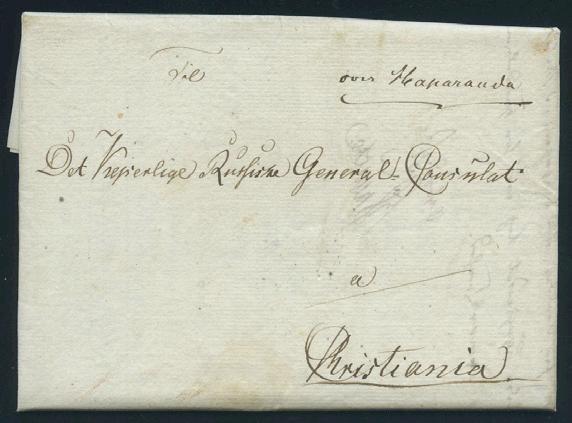 Til
over Haparanda
Det Keiserlige Russiske General-Consulat
a
Christiania